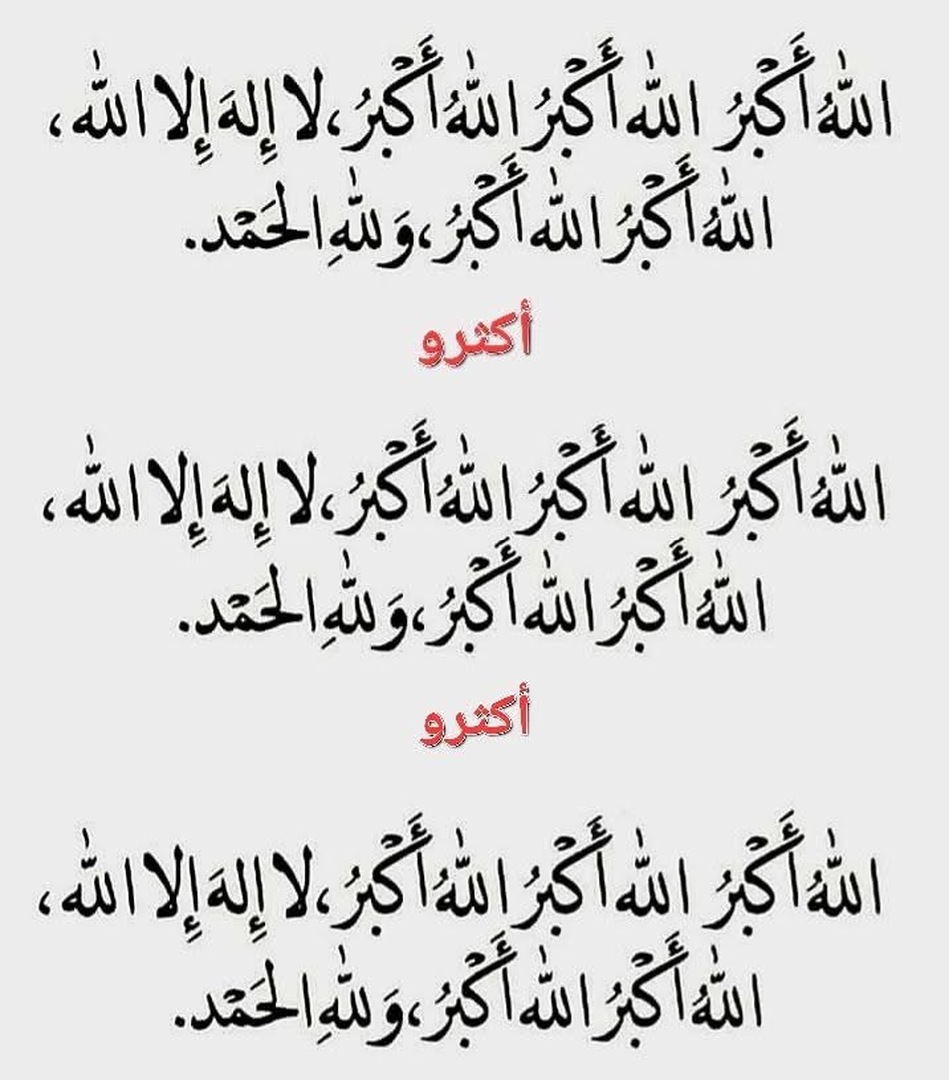 اللهُ أَكْبَرُ اللهُ أَكْبَرُ اللهُ أَكْبَرُ، لا إِلهَ إِلا الله،
اللهُ أَكْبَرُ اللهُ أَكْبَرُ، وَللهِ الحَمْد.
أكثرو
اللهُ أَكْبَرُ اللهُ أَكْبَرُ اللهُ أَكْبَرُ، لا إِلهَ إِلا الله،
اللهُ أَكْبَرُ اللهُ أَكْبَرُ، وَللهِ الحَمْد.
أكثرو
اللهُ أَكْبَرُ اللهُ أَكْبَرُ اللهُ أَكْبَرُ، لا إِلهَ إِلا الله،
اللهُ أَكْبَرُ اللهُ أَكْبَرُ، وَللهِ الحَمْد.